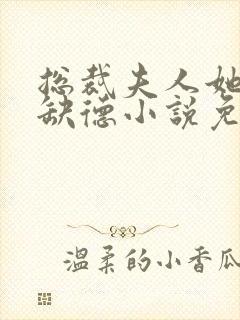 总裁夫人她
缺德小説免
温柔的小香瓜